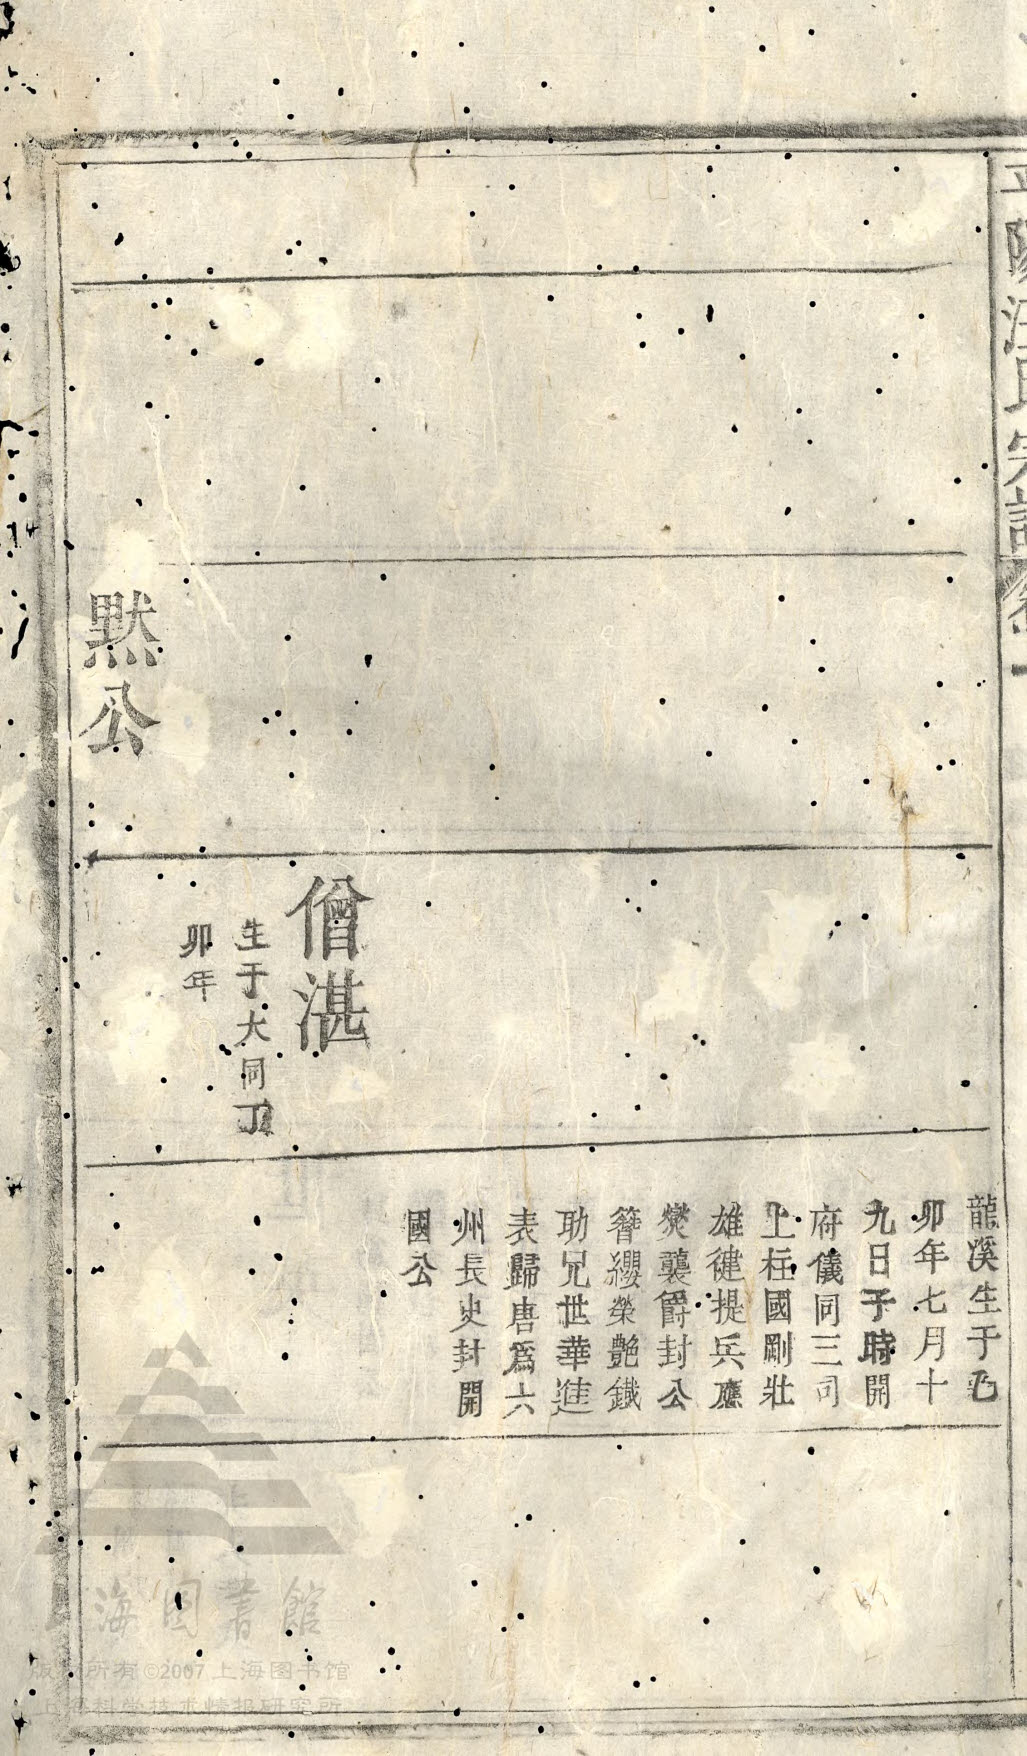 平陽汪氏宗譜
卷一
龍溪生于乙
卯年七月十
九日子時開
府儀同三司
上柱國剛壯
雄健提兵應
爕襲爵封公
簪纓榮艶鐵
助兄世華進
表歸唐爲六
州長史封開
國公
僧湛
生于大同丁
卯年
黙公
上海图書館
版权所有©2007 上海图书馆
上海科学技术情报研究所